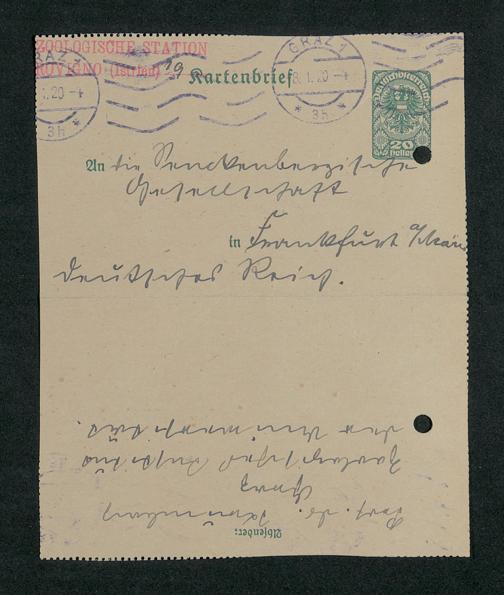 ZOOLOGISCHE STATION
ROVIGNO (Istrien)
19
Kartenbrief
GRAZ 1
1.20-4
* 3h *
GRAZ 1
8.1.20-4
* 3h *
Deutschösterreich
20
Heller
An die Senckenbergische
Gesellschaft
in Frankfurt a/Main
Deutsches Reich.
Absender:
Prof. Dr.
Graz
Zoologisches Institut
der Universität.